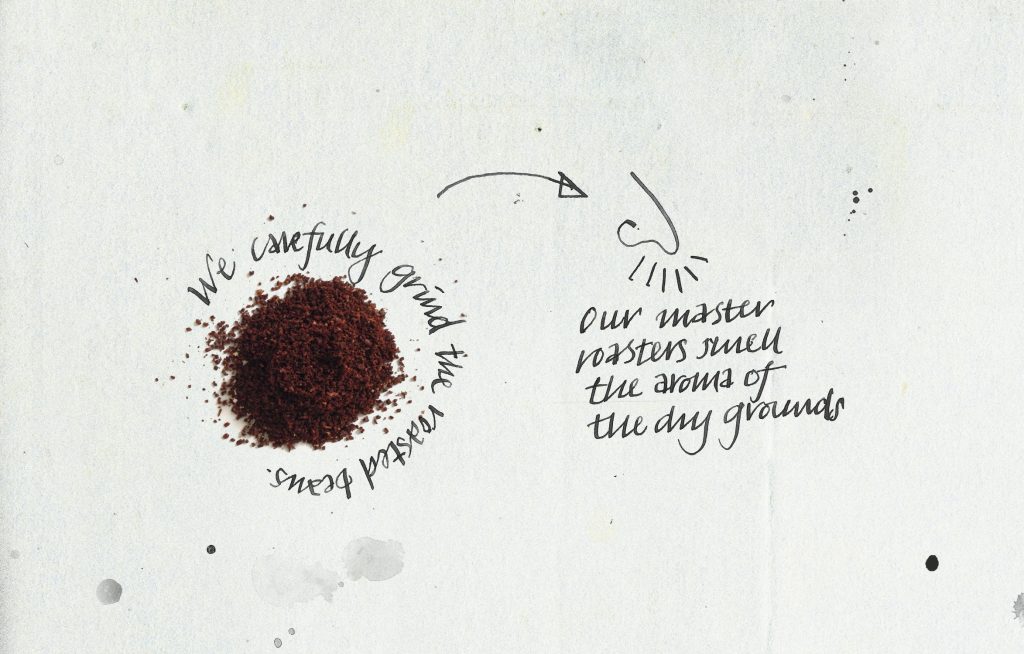 We carefully grind the roasted beans.
Our master
roasters smell
the aroma of
the dry grounds